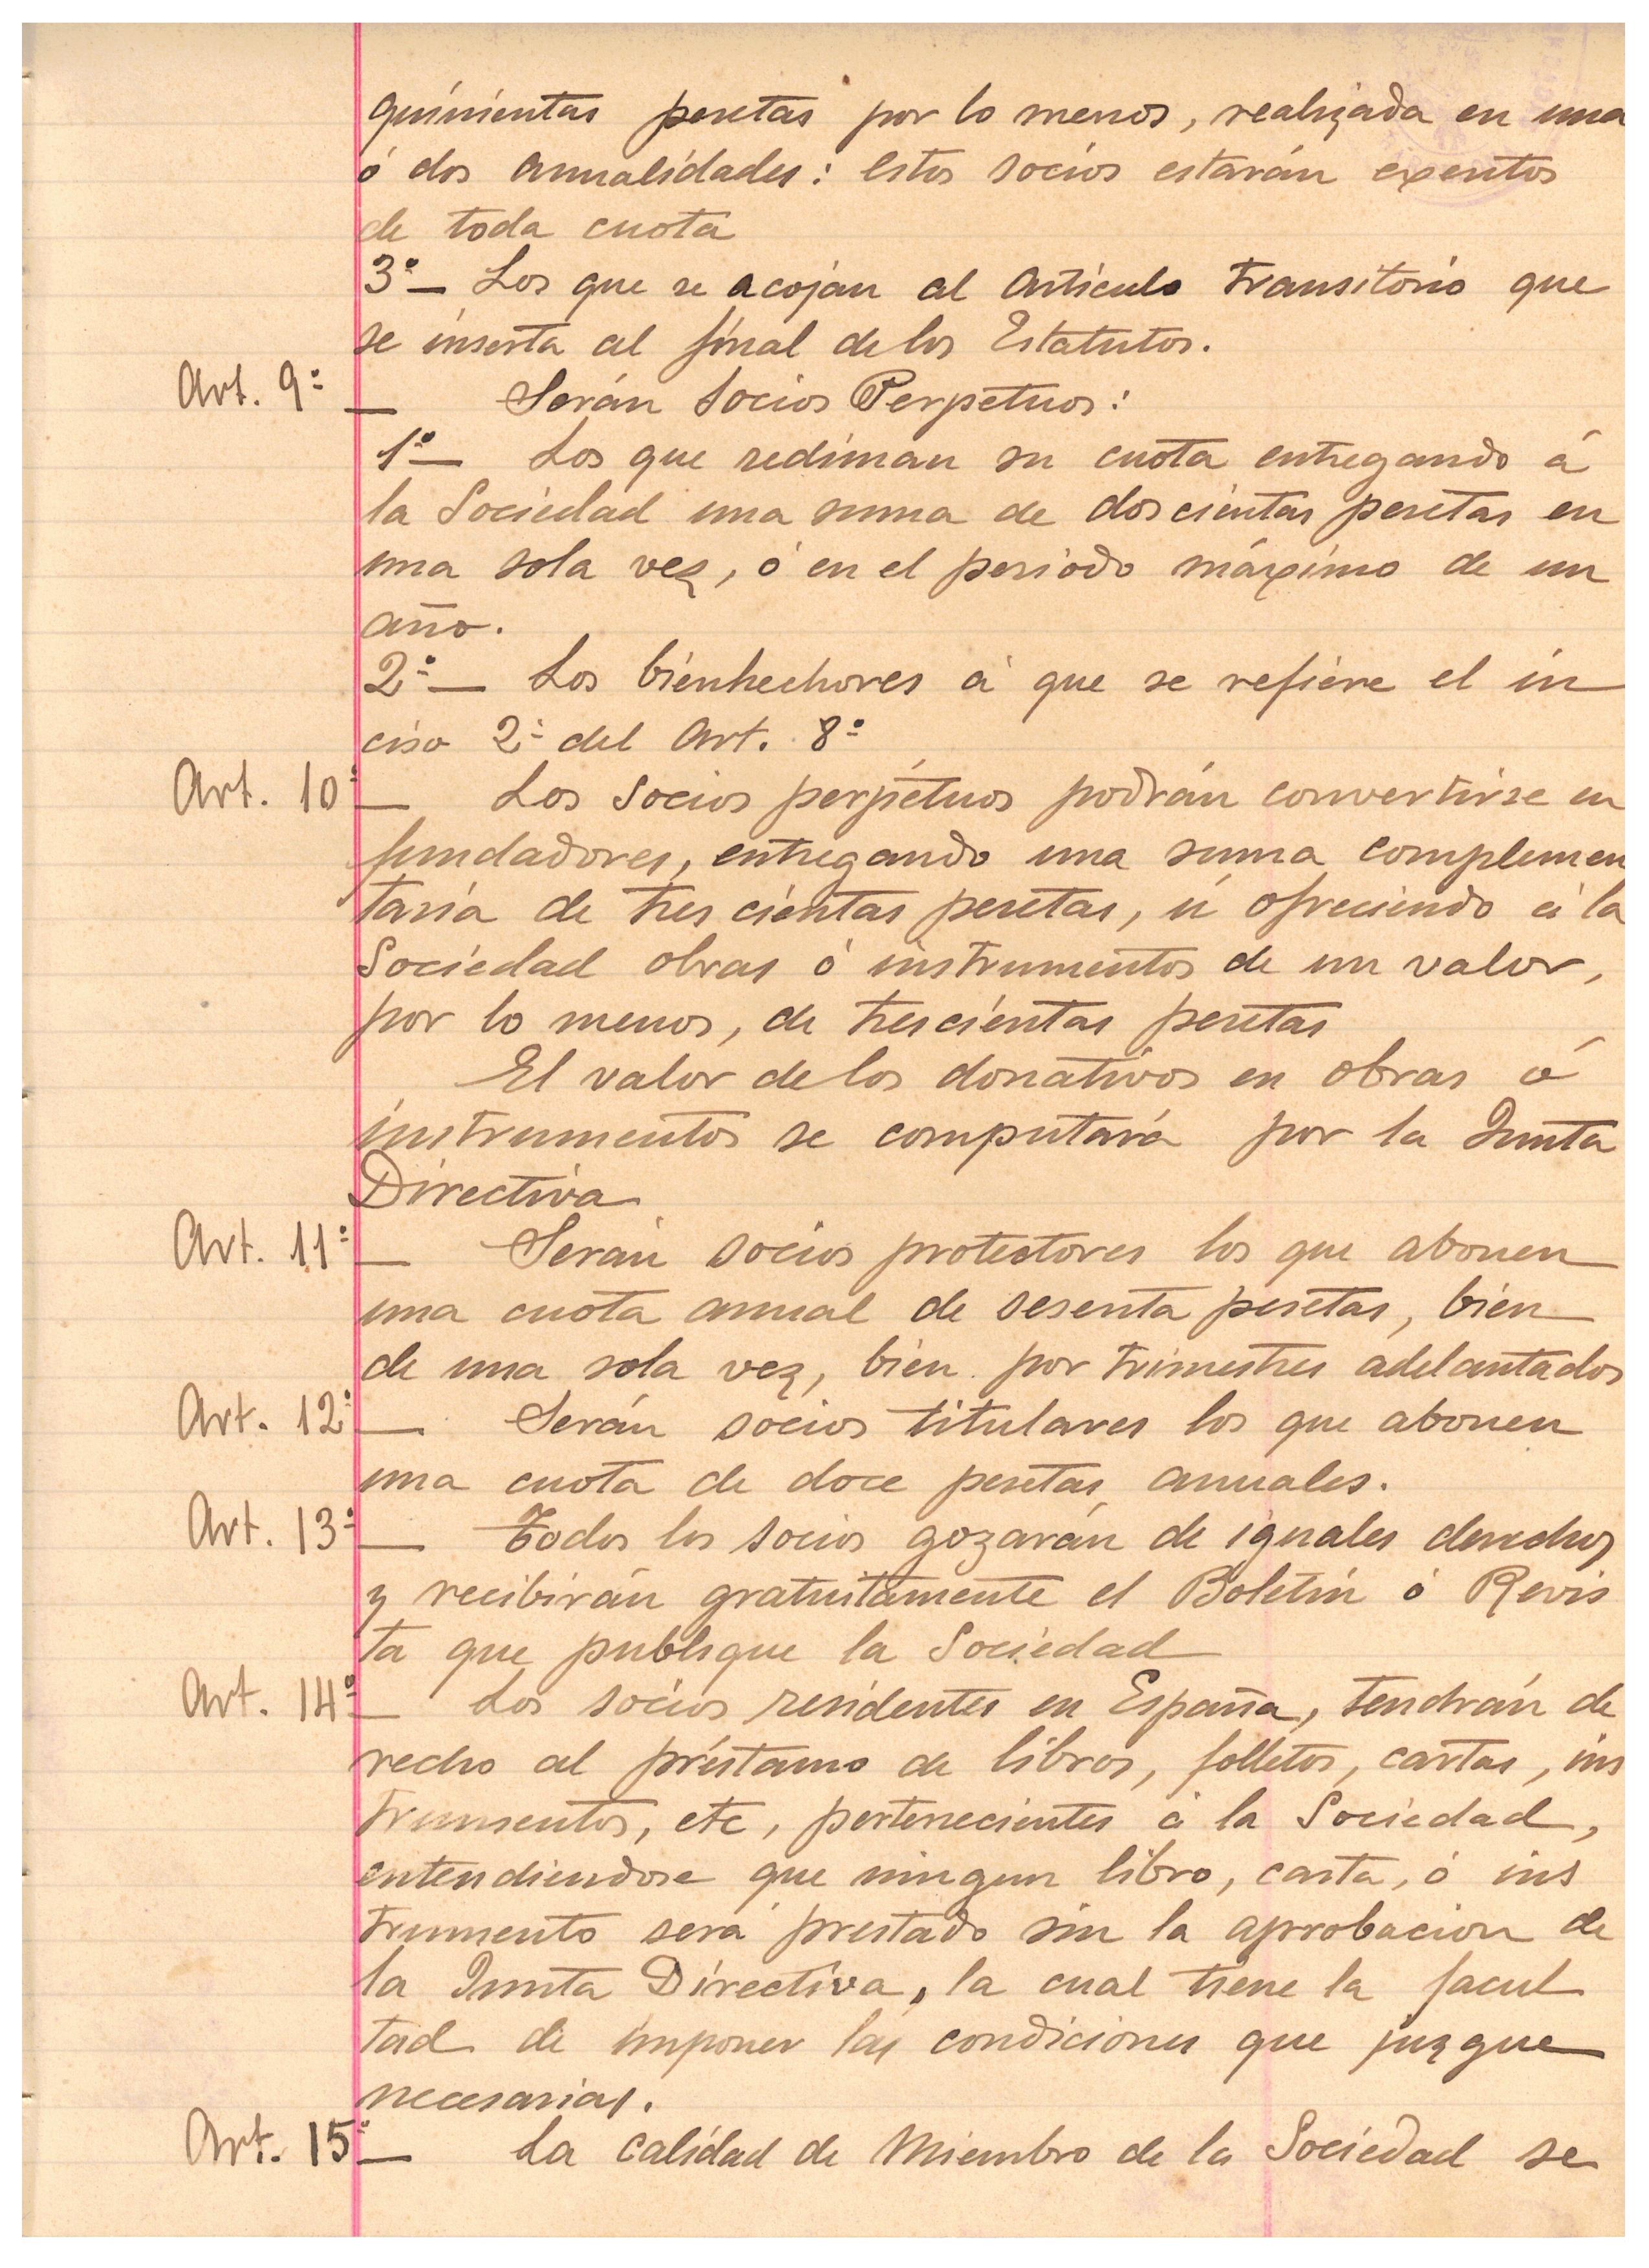 quinientas pesetas por lo menos, realizada en una
ó dos anualidades: estos socios estarán exentos
de toda cuota
3º— Los que se acojan al articulo transitorio que
se inserta al final de los Estatutos.
Art. 9º — Serán Socios Perpetuos:
1º— Los que rediman su cuota entregando á
la Sociedad una suma de doscientas pesetas en
una sola vez, ó en el periodo máximo de un
año.
2º— Los bienhechores á que se refiere el in
ciso 2º del Art. 8º
Art. 10º — Los Socios perpétuos podrán convertirse en
fundadores, entregando una suma complemen
taria de trescientas pesetas, ú ofreciendo á la
Sociedad obras ó instrumentos de un valor,
por lo menos, de trescientas pesetas
El valor de los donativos en obras ó
instrumentos se computará por la Junta
Directiva
Art. 11º — Serán socios protectores los que abonen
una cuota anual de sesenta pesetas, bien
de una sola vez, bien por trimestres adelantados
Art. 12º — Serán socios titulares los que abonen
una cuota de doce pesetas anuales.
Art. 13º — Todos los socios gozarán de iguales derechos
y recibirán gratuitamente el Boletín ó Revis
ta que publique la Sociedad
Art. 14º — Los socios residentes en España, tendrán de
recho al préstamo de libros, folletos, cartas, ins
trumentos, etc, pertenecientes á la Sociedad,
entendiendose que ningun libro, carta, ó ins
trumento será prestado sin la aprobacion de
la Junta Directiva, la cual tiene la facul
tad de imponer las condiciones que juzgue
necesarias.
Art. 15º — La calidad de Miembro de la Sociedad se